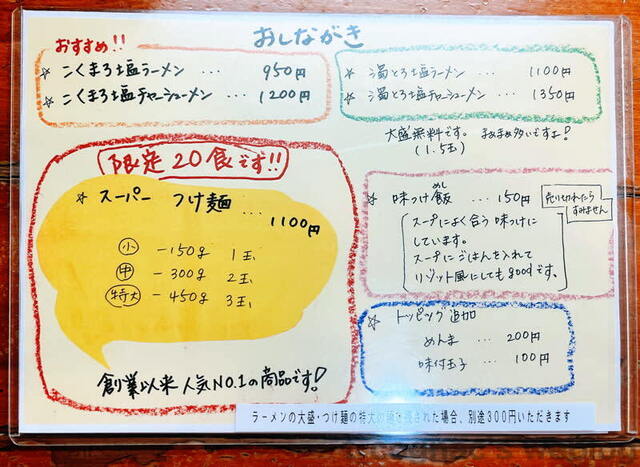 おしながき
おすすめ!!
☆ こくまろ塩ラーメン ... 950円
☆ こくまろ塩チャーシューメン ... 1200円
☆ 濁とろ塩ラーメン ... 1100円
☆ 濁とろ塩チャーシューメン ... 1350円
大盛無料です。まぁまぁ多いですよ!
(1.5玉)
限定20食です!!
☆ スーパー つけ麺 ...
1100円
小 -150g 1玉
中 -300g 2玉
特大 -450g 3玉
創業以来人気NO.1の商品です!
☆ 味つけ飯 ... 150円
めし
売り切れたら
すみません
スープによく合う味つけに
しています。
スープにごはんを入れて
リゾット風にしてもgoodです。
☆ トッピング追加
めんま ... 200円
味付玉子 ... 100円
ラーメンの大盛・つけ麺の特大の麺を残された場合、別途300円いただきます